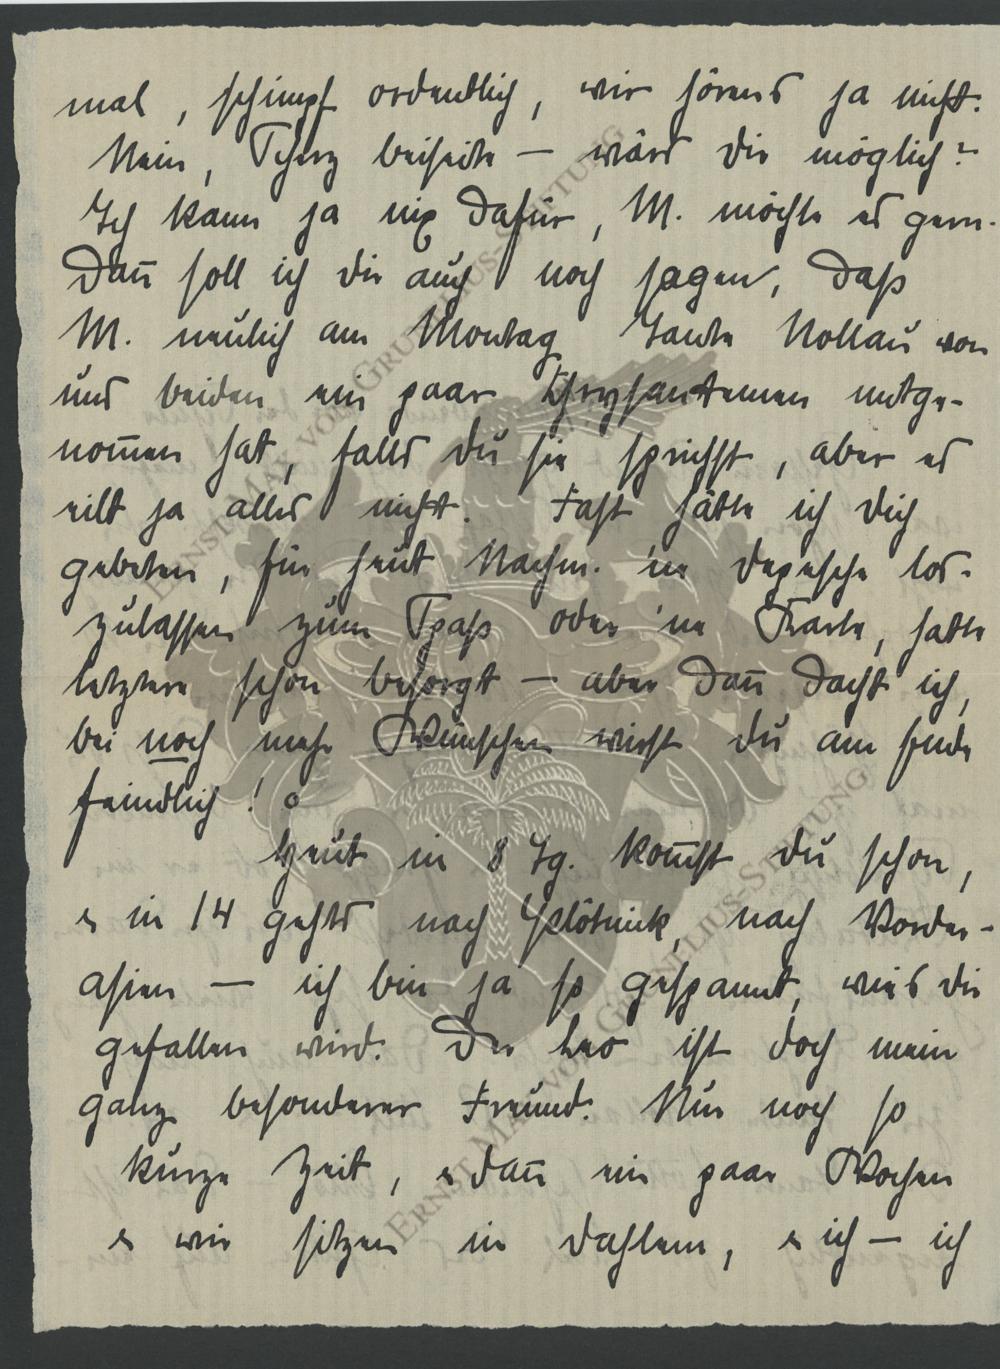 mal, schimpf ordentlich, wir hörens ja nicht.
Nein, Scherz beiseite — wärs dir möglich?
Ich kann ja nix dafür, M. möchte es gern.
Dan̅ soll ich dir auch noch sagen, daß
M. neulich am Montag Tante Nollau von
uns beiden ein paar Chrysantemen mitge-
nom̅en hat, falls du sie sprichst, aber es
eilt ja alles nicht. Fast hätte ich dich
gebeten, für heut Nachm. 'ne Depesche los-
zulassen zum Spaß oder 'ne Karte, hatte
letztere schon besorgt — aber dan̅ dacht ich,
bei noch mehr Wünschen wirst du am Ende
feindlich!
Heut in 8 Tg. kom̅st du schon,
& in 14 gehts nach nach Vorder-
asien — ich bin ja so gespannt, wies dir
gefallen wird. Der Leo ist doch mein
ganz besonderer Freund. Nur noch so
kurze Zeit, & dan̅ ein paar Wochen
& wir sitzen in Dahlem, & ich — ich
ERNST MAX VON GRUNELIUS-STIFTUNG
ERNST MAX VON GRUNELIUS-STIFTUNG